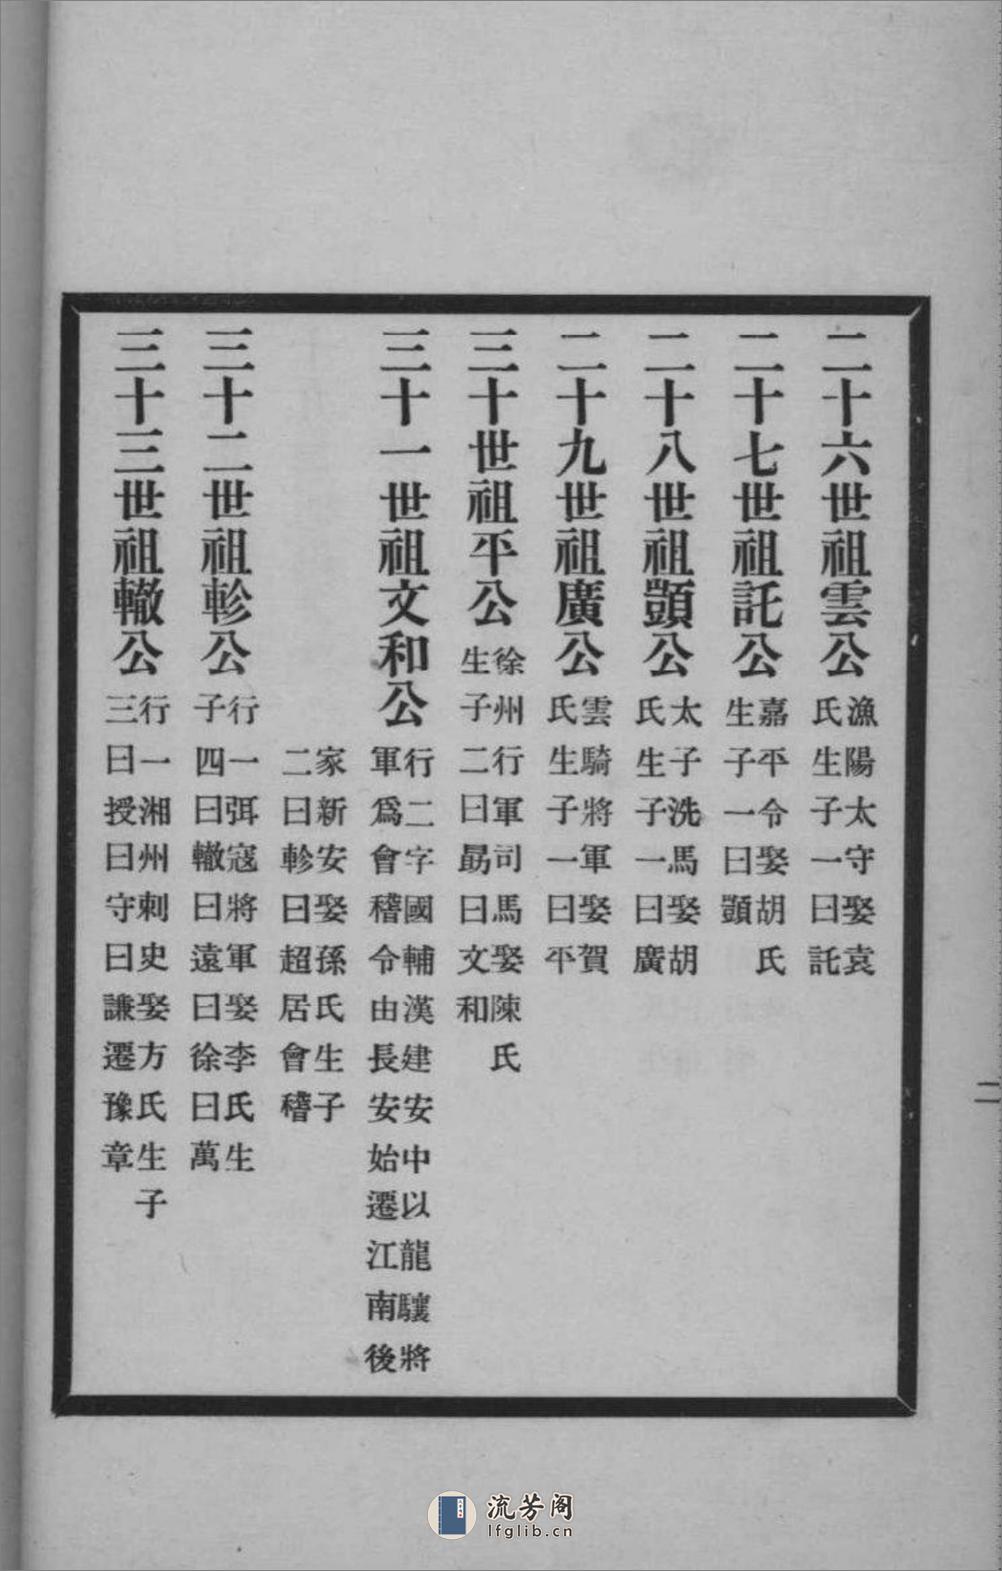 二十六世祖雲公 漁陽太守娶袁
氏生子一曰託
二十七世祖託公 嘉平令娶胡氏
生子一曰顗
二十八世祖顗公 太子洗馬娶胡
氏生子一曰廣
二十九世祖廣公 雲騎將軍娶賀
氏生子一曰平
三十世祖平公 徐州行軍司馬娶陳氏
生子二曰勗曰文和
三十一世祖文和公 行二字國輔漢建安中以龍驤將
軍爲會稽令由長安始遷江南後
家新安娶孫氏生子
二曰軫曰超居會稽
三十二世祖軫公 行一弭寇將軍娶李氏生
子四曰轍曰遠曰徐曰萬
三十三世祖轍公 行一湘州刺史娶方氏生子
三曰授曰守曰謙遷豫章
二
流芳阁
lfglib.cn